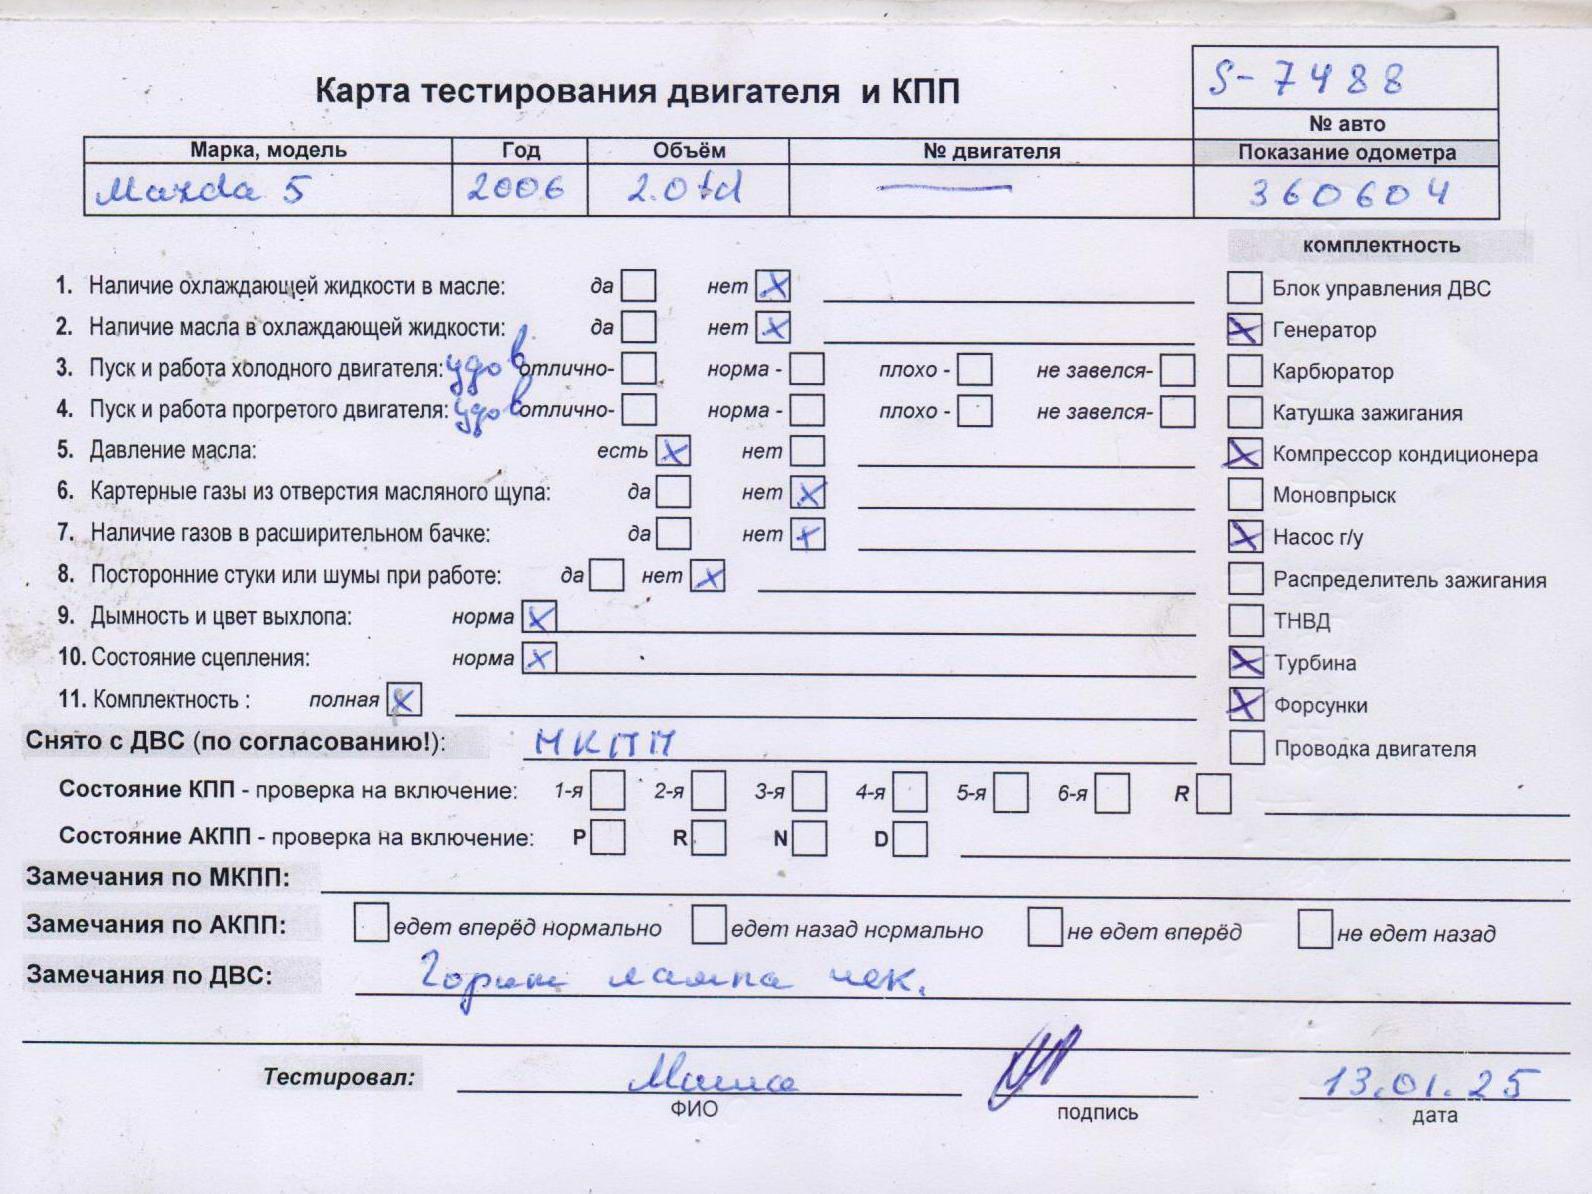 S-7488
Карта тестирования двигателя и КПП
№ авто
Марка, модель Год Объём № двигателя Показание одометра
Mazda 5 2006 2.0td — 360604
комплектность
1. Наличие охлаждающей жидкости в масле: да нет X Блок управления ДВС
2. Наличие масла в охлаждающей жидкости: да нет X X Генератор
3. Пуск и работа холодного двигателя: удов отлично- норма - плохо - не завелся- Карбюратор
4. Пуск и работа прогретого двигателя: удов отлично- норма - плохо - не завелся- Катушка зажигания
5. Давление масла: есть X нет X Компрессор кондиционера
6. Картерные газы из отверстия масляного щупа: да нет X Моновпрыск
7. Наличие газов в расширительном бачке: да нет X X Насос г/у
8. Посторонние стуки или шумы при работе: да нет X Распределитель зажигания
9. Дымность и цвет выхлопа: норма X ТНВД
10. Состояние сцепления: норма X X Турбина
11. Комплектность : полная X X Форсунки
Снято с ДВС (по согласованию!): МКПП Проводка двигателя
Состояние КПП - проверка на включение: 1-я 2-я 3-я 4-я 5-я 6-я R
Состояние АКПП - проверка на включение: P R N D
Замечания по МКПП:
Замечания по АКПП: едет вперёд нормально едет назад нормально не едет вперёд не едет назад
Замечания по ДВС: Горит лампа чек.
Тестировал: 13.01.25
ФИО подпись дата